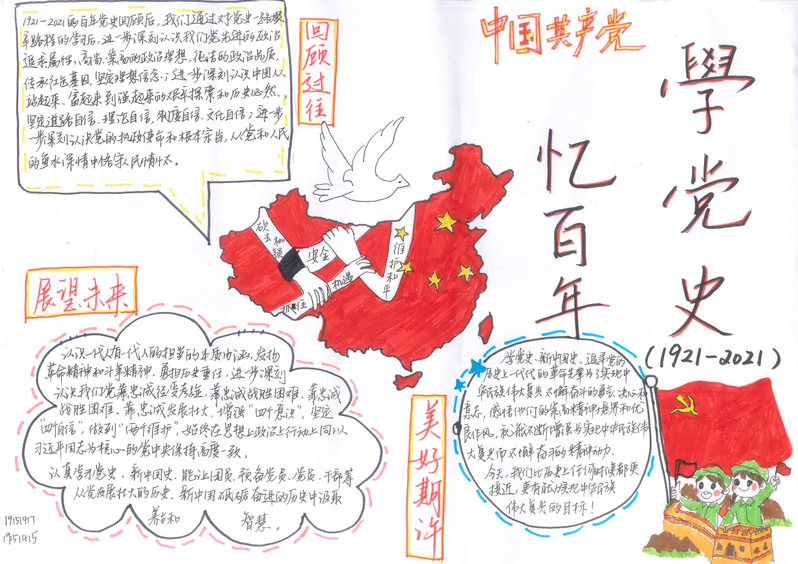 中国共产党
學党史
忆百年
(1921-2021)
回顾过往
1921-2021的百年党史回顾后,我们通过对党史
的学习后,进一步深刻认识我们党先进的政治
追求属性,高尚、崇高的政治理想,纯洁的政治品质,
传承红色基因,坚定理想信念;进一步深刻认识中国从
站起来、富起来到强起来的艰辛探索和历史必然,
坚定道路自信、理论自信、制度自信、文化自信;进一步
一步深刻认识党的执政使命和根本宗旨,从党和人民
的鱼水深情中恪守人民情怀。
砍去枷锁
安全
抓住
机遇
维护和平
展望未来
认识一代人有一代人的担当的本质内涵,发扬
革命精神和斗争精神,勇担历史重任,进一步深刻
认识我们党篇忠诚经受考验,篇忠诚战胜困难,篇忠诚
战胜困难,篇忠诚发展壮大,增强“四个意识”,坚定
“四个自信”,做到“两个维护”,始终在思想上政治上行动上同以
习近平同志为核心的党中央保持高度一致。
认真学习党史、新中国史,能让团员、预备党员、党员、干部等
从党发展壮大的历史、新中国砥砺奋进的历史中汲取
智慧。
美好期许
学党史、新中国史,追寻党的
历史上一代代的革命先辈为了实现中
华民族伟大复兴不懈奋斗的勇气、决心和
意志,感悟他们的崇高精神境界和优
良作风,就能不断增强为实现中华民族伟
大复兴而不懈奋斗的精神动力。
今天,我们比历史上任何时候都更
接近、更有能力实现中华民族
伟大复兴的目标!
19151417
19151415